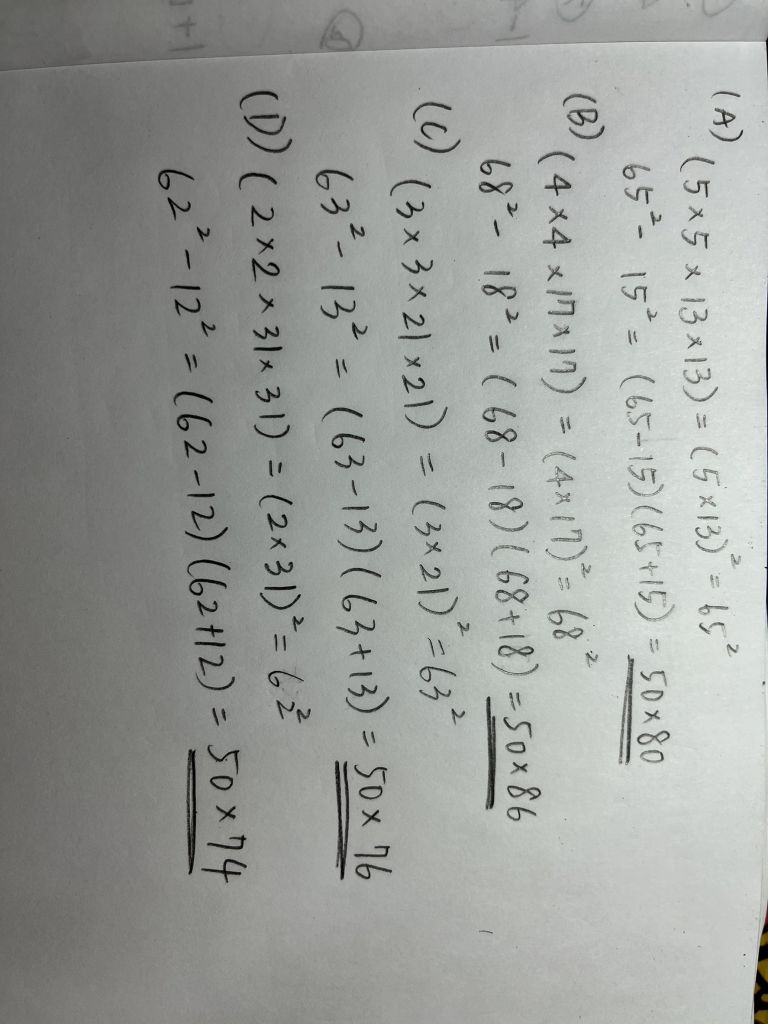 (A) (5×5×13×13)=(5×13)²=65²
65²-15²=(65-15)(65+15)=50×80
(B) (4×4×17×17)=(4×17)²=68²
68²-18²=(68-18)(68+18)=50×86
(C) (3×3×21×21)=(3×21)²=63²
63²-13²=(63-13)(63+13)=50×76
(D) (2×2×31×31)=(2×31)²=62²
62²-12²=(62-12)(62+12)=50×74